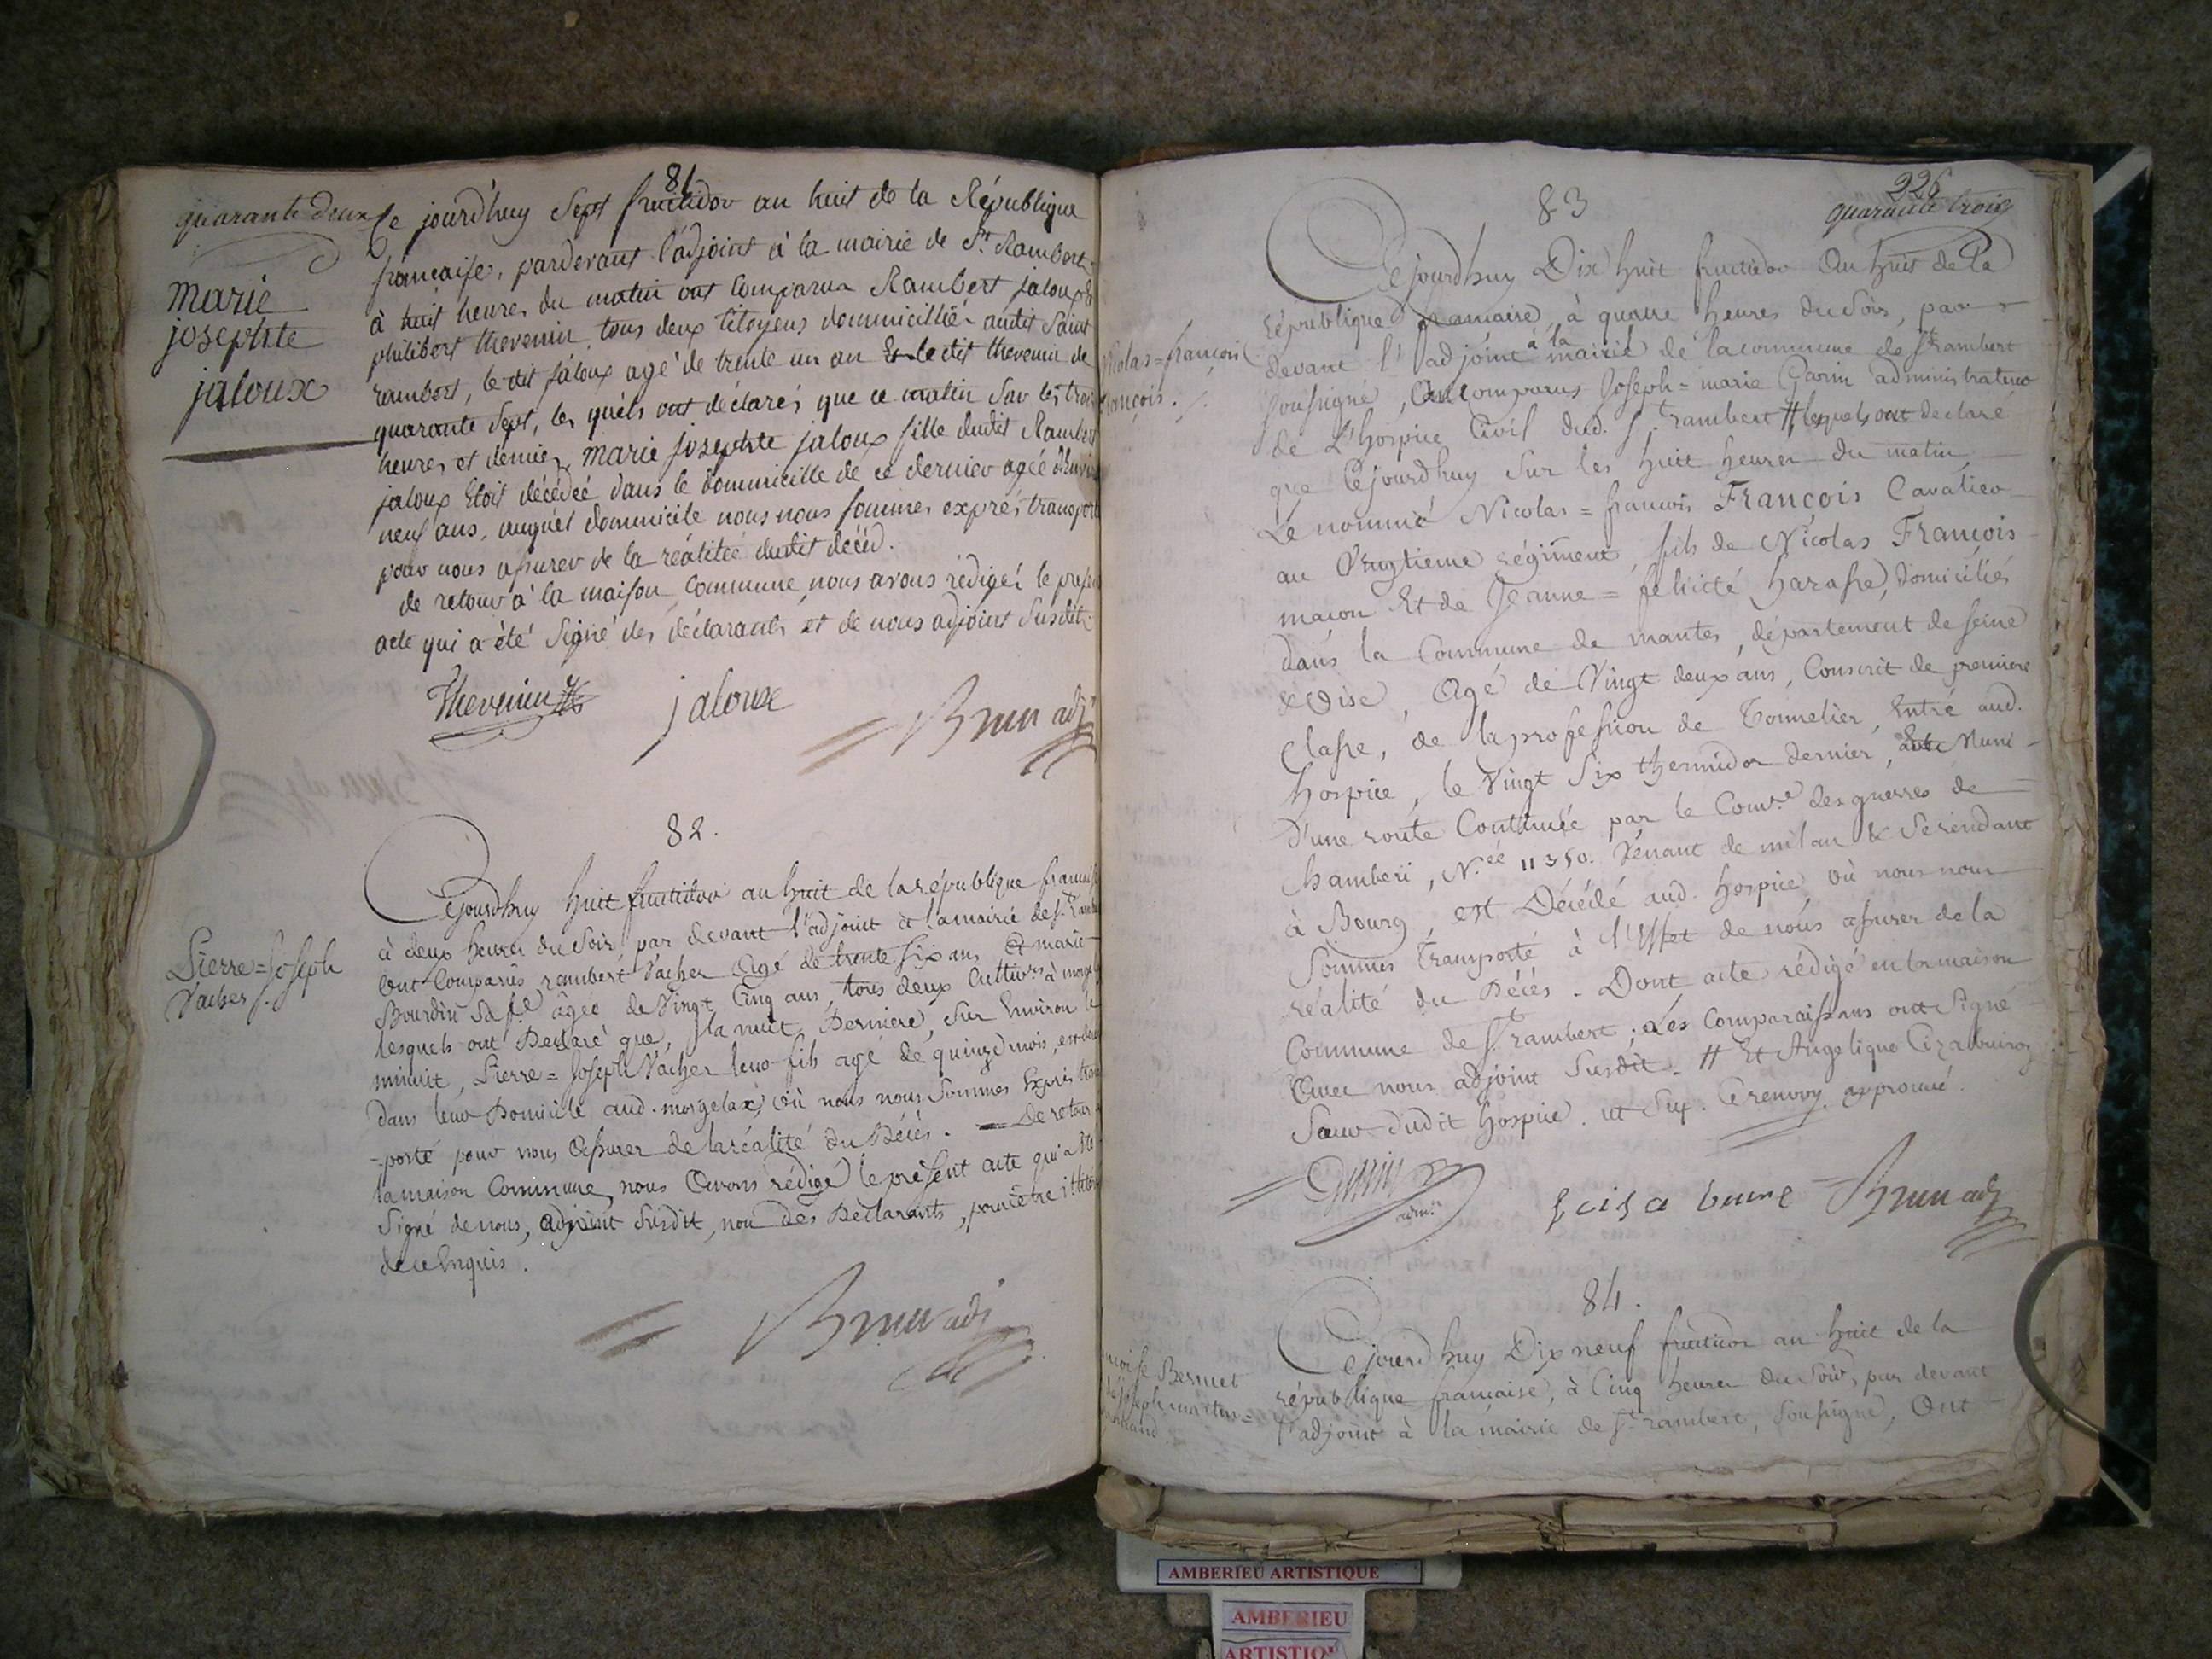 81
quarante deux
Marie
josephte
jaloux
Ce jourd'huy Sept fructidor an huit de la République
francaise, pardevant l'adjoint à la mairie de St. Rambert
à huit heures du matin ont Comparus Rambert jaloux &
philibert thevenin tous deux Citoyens dommicilliés audit Saint
rambert, le dit jaloux agé de trente un an Et le dit thevenin de
quarante Sept, les quels ont déclarés que ce matin Sur les trois
heures et demies marie josephte jaloux fille dudit Rambert
jaloux Etoit décédéé dans le dommicille de ce dernier agéé
neuf ans, auquel domicile nous nous sommes exprés transporté
pour nous assurer de la réalitéé dudit décéd.
de retour à la maison Commune nous avons rédigéé le présent
acte qui a été Signé des déclarants et de nous adjoint Susdit.
Thevenin jaloux Brun adj
82.
Pierre=Joseph
Vacher /.
Cejourdhuy huit fructidor an huit de la république
à deux heures du Soir par devant l'adjoint à la mairie de St.
Ont Comparus rambert Vacher Agé de trente Six ans & marie
Bourdin Sa fe. âgée de Vingt Cinq ans, tous deux Cultivrs à
lesquels ont Déclaré que, la nuit Derniere, Sur Environ
minuit, Pierre=Joseph Vacher leur fils agé de quinze mois, est
Dans leur Domicile aud. morgelax, où nous nous Sommes Exprès
-porté pour nous Assurer de la réalité du Décés. — De retour
la maison Commune, nous Avons rédigé le présent acte qui a été
Signé de nous, adjoint Susdit, non des Déclarants, pour être
de ce Enquis.
Brun adj
226
83
quarante trois
Nicolas=françois
françois. /.
Cejourdhuy Dix huit fructidor An huit de la
république francaise, à quatre heures du Soir, par
devant l'adjoint à la mairie de la commune de St. rambert
Soussigné, Ont comparus Joseph=marie Garin administrateur
de L'hospice Civil dud. St. rambert # lesquels ont declaré
que Cejourdhuy Sur les huit heures du matin
Le nommé Nicolas=francois François Cavalier
au Vingtieme régiment, fils de Nicolas François
macon Et de Jeanne=félicité harasse, domiciliés
dans la Commune de mantes, département de Seine
& Oise, Agé de Vingt deux ans, Conscrit de premiere
Classe, de la profession de Tonnelier, Entré aud.
hospice, le Vingt Six thermidor dernier, Muni
d'une route Continuée par le Comre. des guerres de
Chamberi, N.ée 11350. Venant de milan & Se rendant
à Bourg, est Décédé aud. hospice où nous nous
Sommes Transporté à l'Effet de nous assurer de la
réalité du Décés. Dont acte rédigé en la maison
Commune de St. rambert; Les Comparaissans ont Signé
Avec nous adjoint Susdit. # Et Angelique
Sœur dudit hospice. ut Sup. Ce renvoy approuvé.
Garin
adm.r
Brun adj
84.
Bernet
Cejourd huy Dix neuf fructidor an huit de la
république francaise, à Cinq heures du Soir, par devant
l'adjoint à la mairie de St. rambert, Soussigné, Ont
AMBERIEU ARTISTIQUE
AMBERIEU
ARTISTIQU